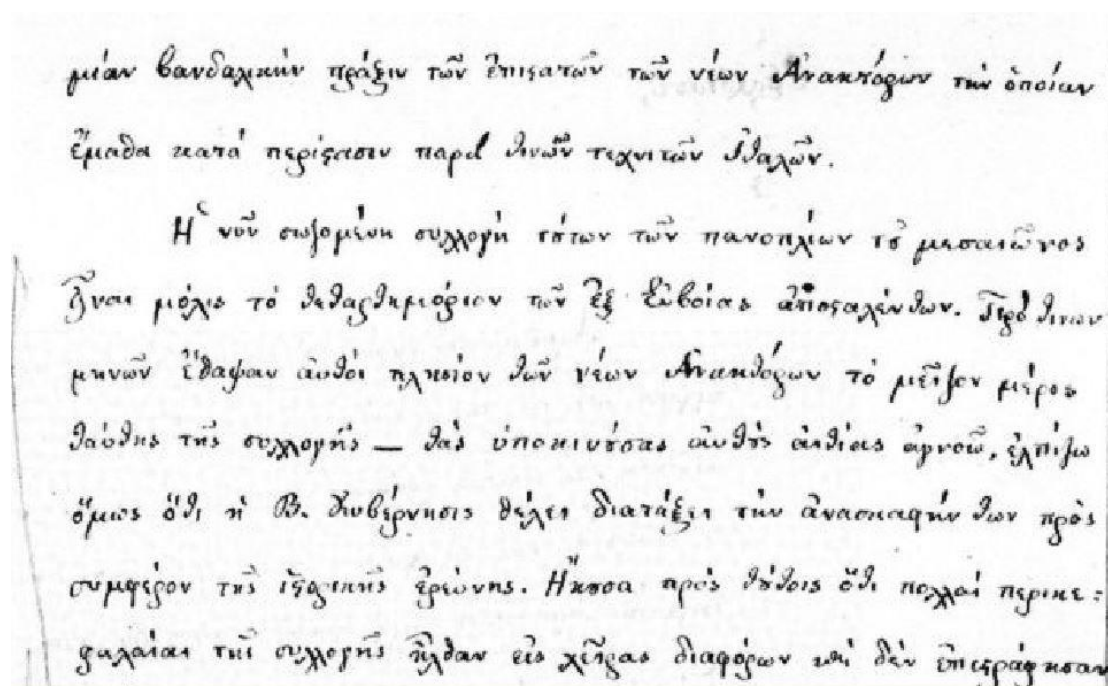 μίαν βανδαλικὴν πρᾶξιν τῶν ἐπιστατῶν τῶν νέων Ἀνακτόρων τὴν ὁποίαν
ἔμαθα κατὰ περίστασιν παρὰ τινῶν τεχνιτῶν Ἰταλῶν.
Ἡ νῦν σωζομένη συλλογὴ τούτων τῶν πανοπλίων τοῦ μεσαιῶνος
εἶναι μόλις τὸ τεταρτημιόριον τῶν ἐξ Εὐβοίας ἀποσταλέντων. Πρὸ τινων
μηνῶν ἔθαψαν αὐτοὶ πλησίον τῶν νέων Ἀνακτόρων τὸ μεῖζον μέρος
ταύτης τῆς συλλογῆς — τὰς ὑποκινούσας αὐτοὺς αἰτίας ἀγνοῶ, ἐλπίζω
ὅμως ὅτι ἡ Β. Κυβέρνησις θέλει διατάξει τὴν ἀνασκαφήν των πρὸς
συμφέρον τῆς ἱστορικῆς ἐρεύνης. Ἤκουσα πρὸς τούτοις ὅτι πολλαὶ περικε=
φαλαίαι τῆς συλλογῆς ἦλθαν εἰς χεῖρας διαφόρων καὶ δὲν ἐπεστράφησαν